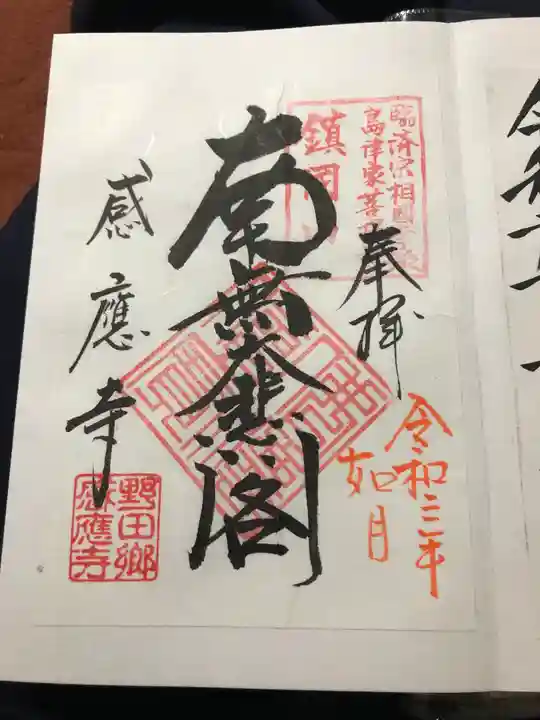 臨済宗相国寺派
島津家菩提寺
鎮国山
奉拝
令和三年
如月
南無大悲閣
感應寺
野田郷
感應寺